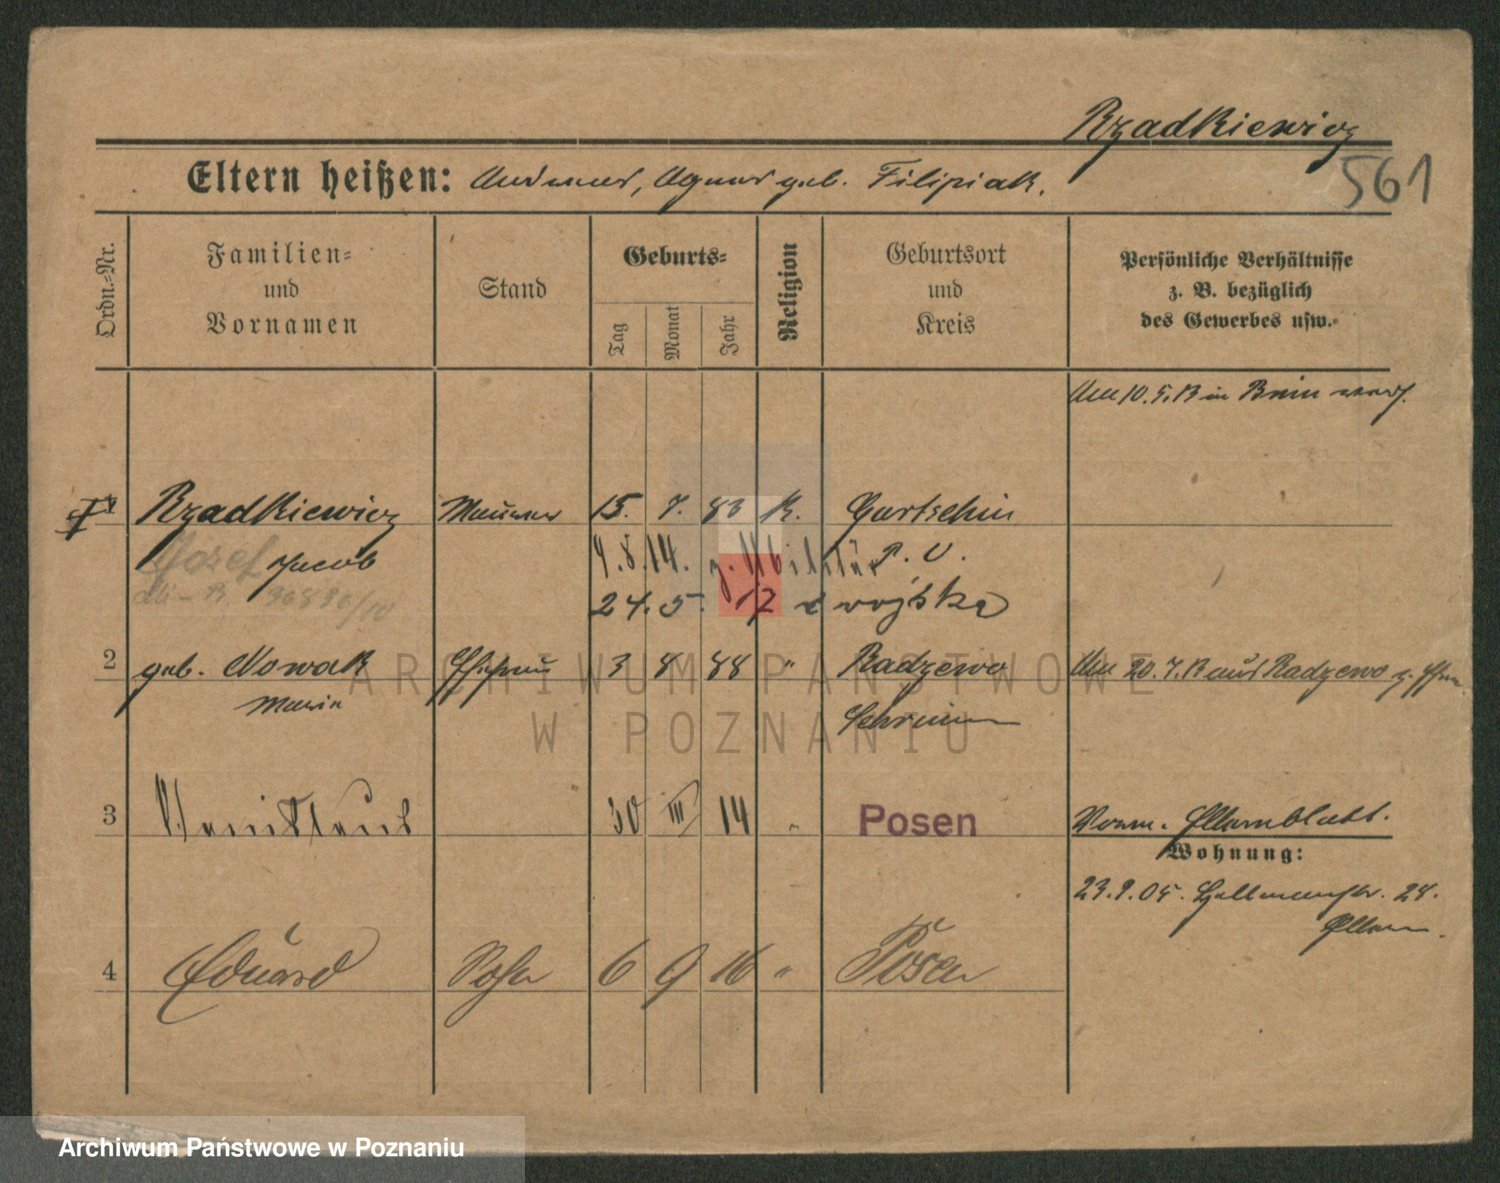 Rzadkiewicz
561
Eltern heißen: Andreas, Agnes geb. Filipiak.
Ordn.-Nr.
Familien-
und
Vornamen
Stand
Geburts-
Tag
Monat
Jahr
Religion
Geburtsort
und
Kreis
Persönliche Verhältnisse
z. B. bezüglich
des Gewerbes usw.
Am 10. 5. 13 in Bnin verh.
Rzadkiewicz Maurer 15. 7. 83 K. Gurtschin
Jozef Jacob 4. 8. 14. z. Militär P. O.
24. 5. 17 z wojska
2 geb. Nowak Ehefrau 3 8 88 " Radzewo Am 20. 7. 13 aus Radzewo z.
Maria Schrimm
3 30 III 14 " Posen
Vorm. Elternblatt.
Wohnung:
23. 9. 05. 24.
Eltern.
4 Eduard Sohn 6 9 16 " Posen
ARCHIWUM PAŃSTWOWE
W POZNANIU
Archiwum Państwowe w Poznaniu